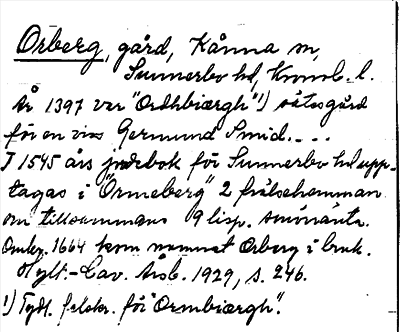 Orberg, gård, Kånna sn,
Sunnerbo hd, Kronob. l.
År 1397 var "Ordhbiærgh"1) sätesgård
för en viss Germund Smid. . . .
I 1545 års jordebok för Sunnerbo hd upp-
tagas i "Ormeberg" 2 frälsehemman
om tillsammans 9 lisp. smörränta.
Omkr. 1664 kom namnet Orberg i bruk.
Hylt.-Cav. Årsb. 1929, s. 246.
1) Tydl. felskr. för "Ormbiærgh".